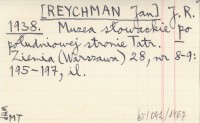 [REYCHMAN Jan] J.R.
1938. Muzea słowackie po
południowej stronie Tatr.
Ziemia (Warszawa) 28, nr 8-9:
195-197, il.
MT